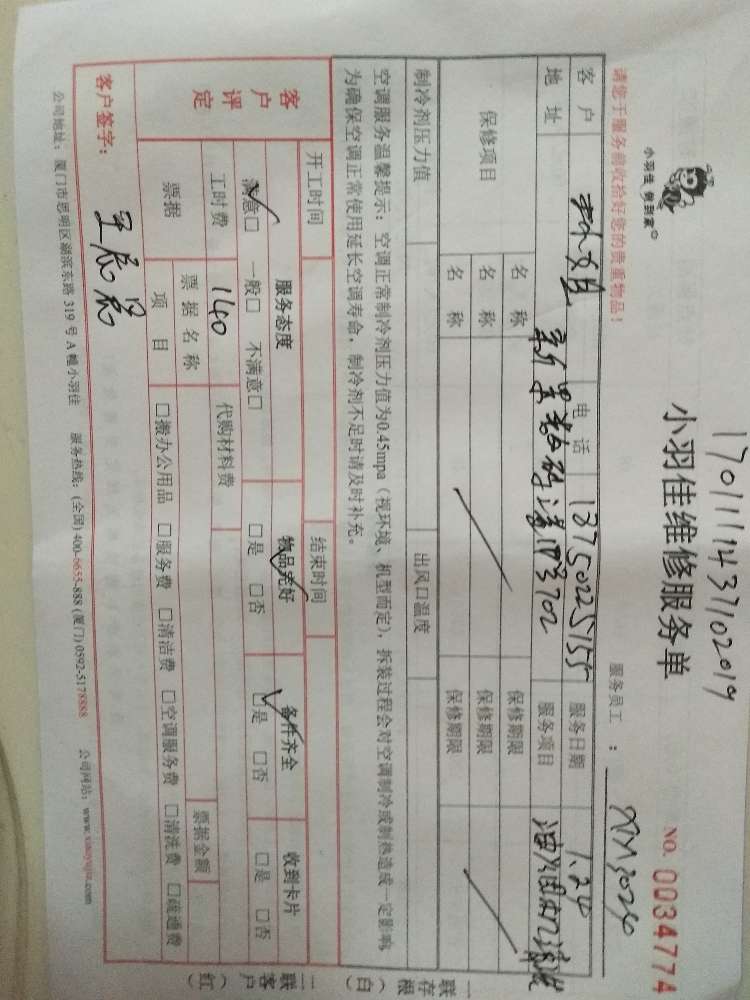 17011114371102019
小羽佳 做到家
小羽佳维修服务单
NO. 0034774
请您于服务前收拾好您的贵重物品！
服务员工：
XM30250
客户
林大姐
电话
13750225155
服务日期
1.24
地址
新景数码港四号702
服务项目
油烟机清洗
保修项目
名称
保修期限
名称
保修期限
名称
保修期限
制冷剂压力值
出风口温度
空调服务温馨提示：空调正常制冷剂压力值为0.45mpa（视环境、机型而定），拆装过程会对空调制冷或制热造成一定影响
为确保空调正常使用延长空调寿命，制冷剂不足时请及时补充。
开工时间
结束时间
客户评定
服务态度
物品完好
备件齐全
收到卡片
满意□ 一般□ 不满意□
□是 □否
□是 □否
□是 □否
工时费
140
代购材料费
票据
票据名称
票据金额
项目
□搬办公用品 □服务费 □清洁费 □空调服务费 □清洗费 □疏通费
客户签字：
公司地址：厦门市思明区湖滨东路 319 号 A 幢小羽佳 服务热线：(全国) 400-6655-888 (厦门) 0592-5178888 公司网站：www.xiaoyujia.com
一联存根（白）
二联客户（红）